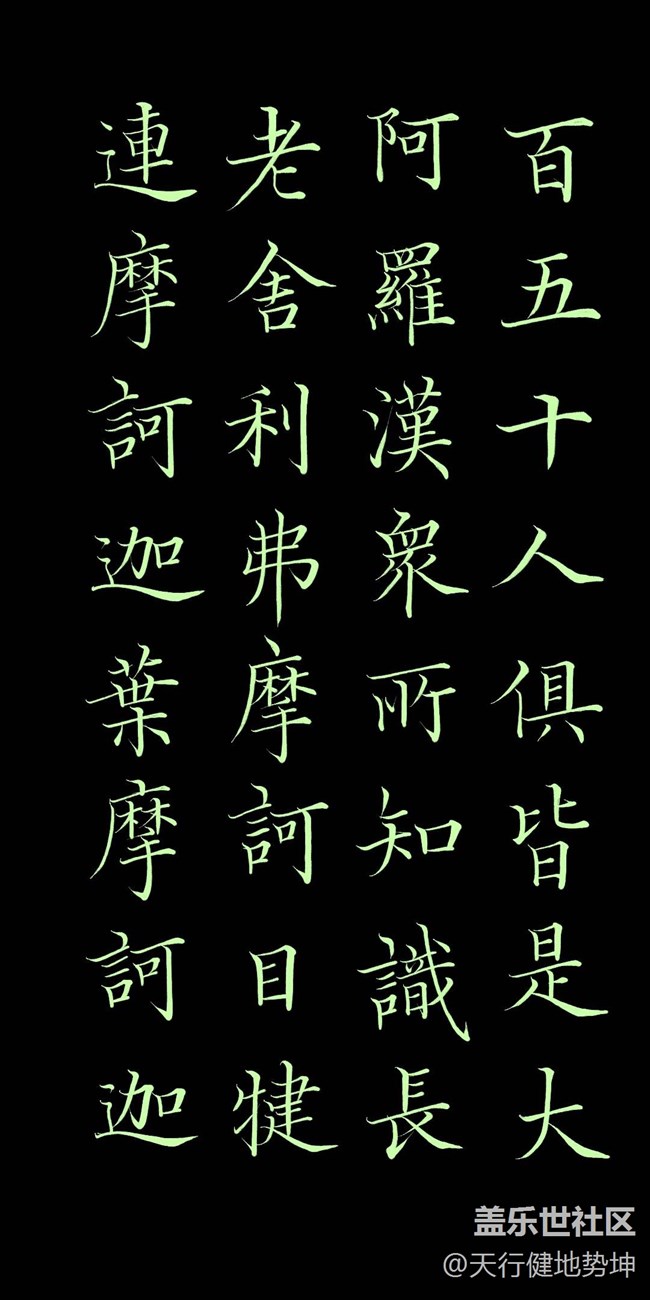 百五十人俱皆是大
阿羅漢衆所知識長
老舍利弗摩訶目犍
連摩訶迦葉摩訶迦
盖乐世社区
@天行健地势坤